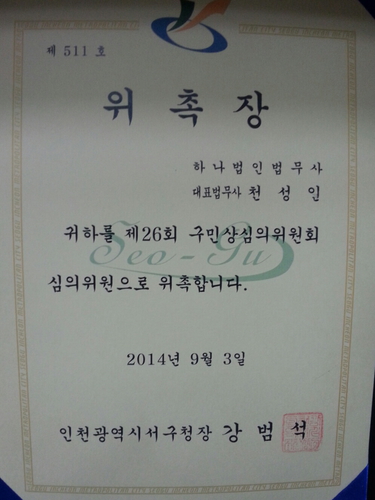 제 511 호
위 촉 장
하나법인법무사
대표법무사 천 성 인
귀하를 제26회 구민상심의위원회
Seo-Gu
심의위원으로 위촉합니다.
2014년 9월 3일
인천광역시서구청장 강 범 석